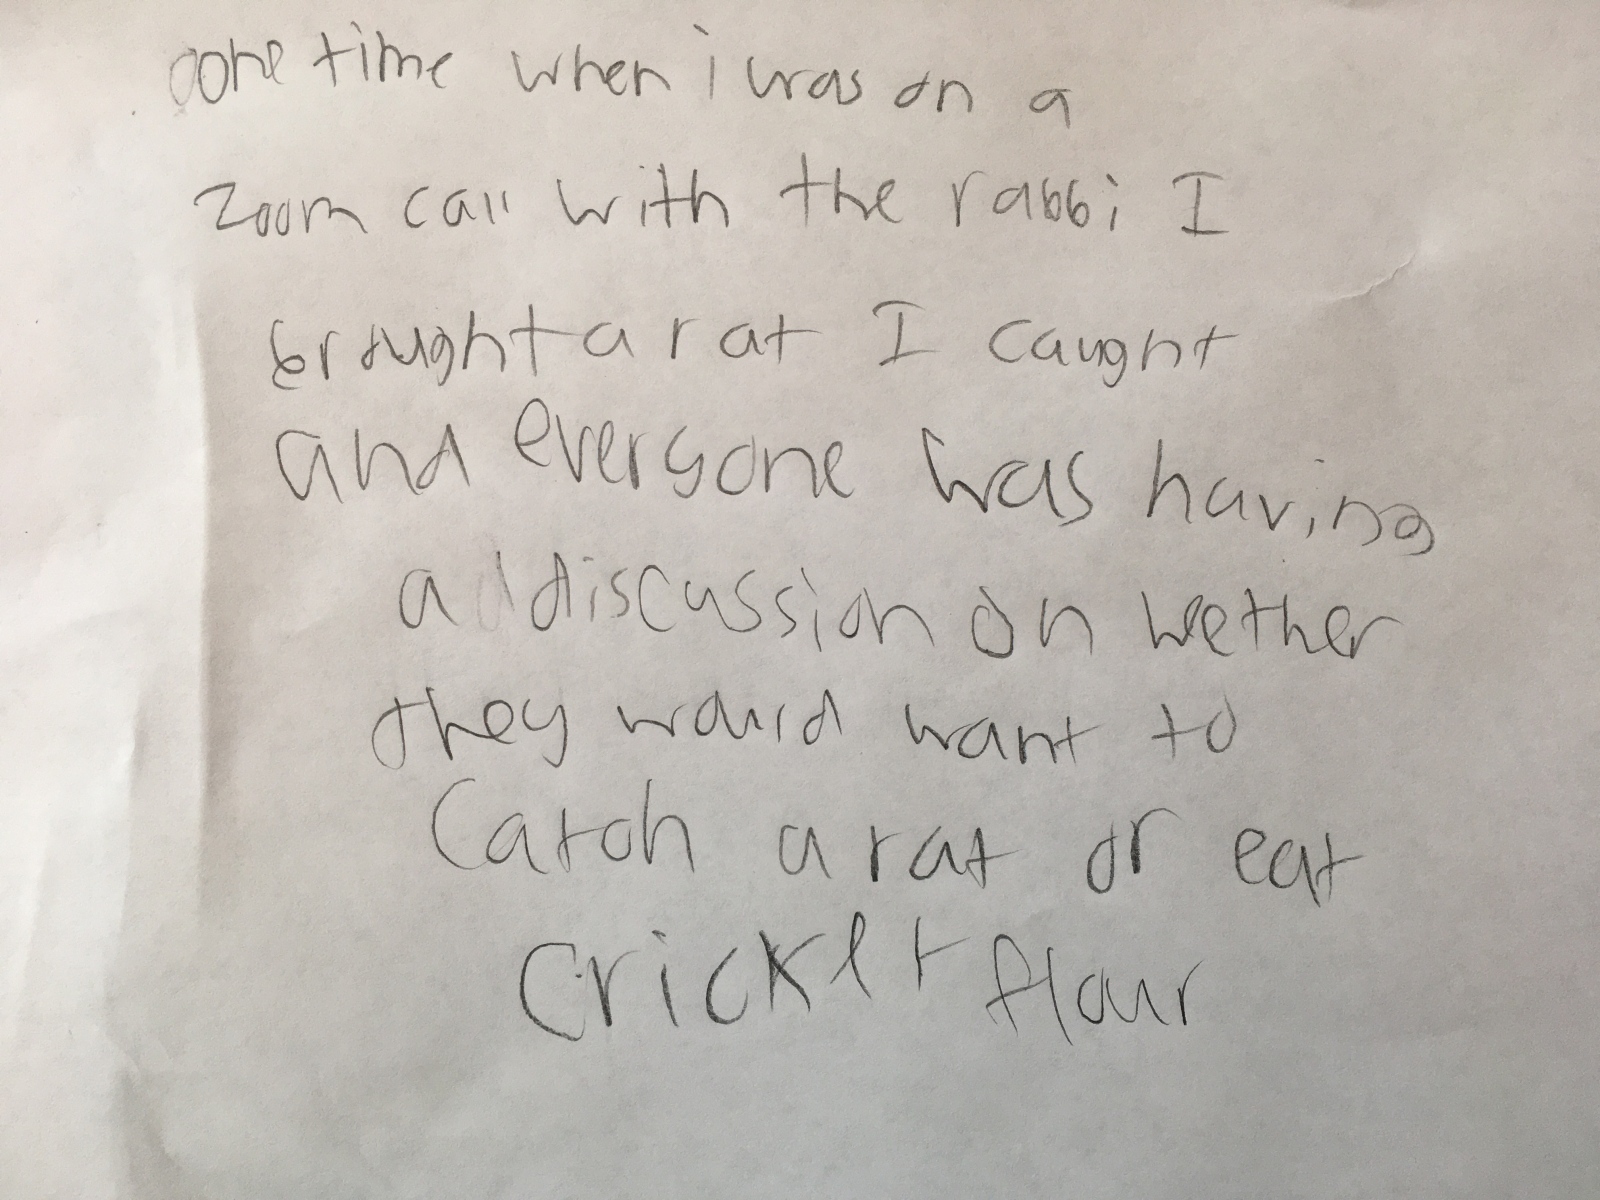 one time when i was on a
zoom call with the rabbi I
brought a rat I caught
and everyone was having
a discussion on wether
they would want to
catch a rat or eat
cricket flour